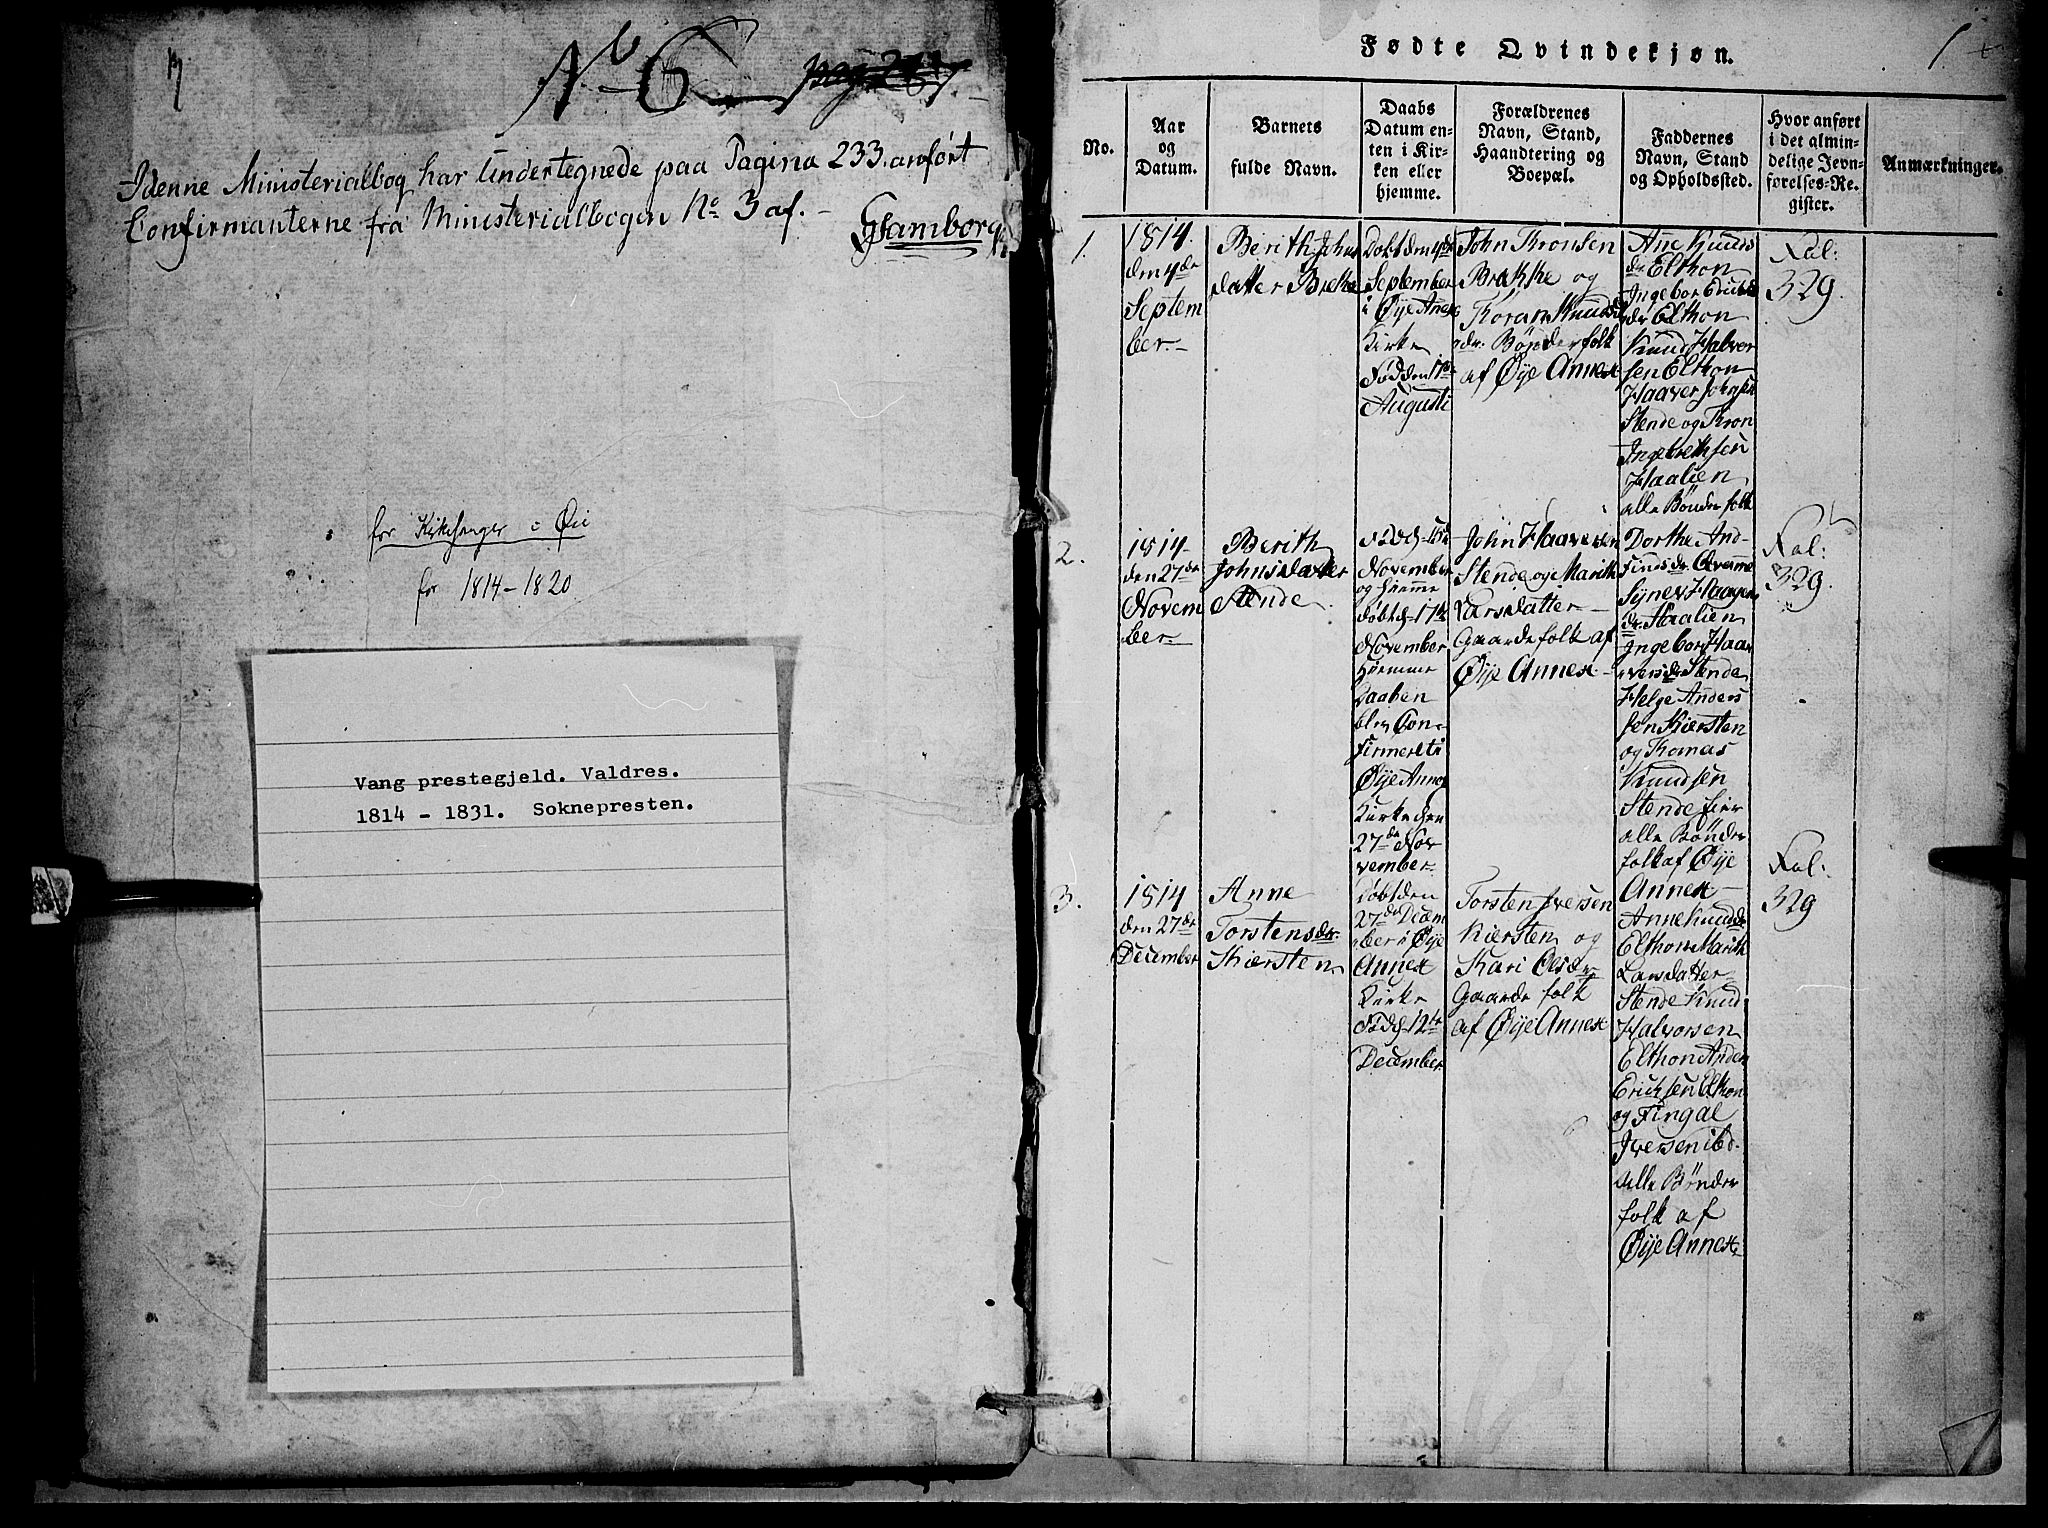 No 6
pag 287
I denne Ministerialbog har Undertegnede paa Pagina 233 anført
Confirmanterne fra Ministerialbogen No 3 af. -
for Kirkesanger i Øie
for 1814 - 1820
Vang prestegjeld. Valdres.
1814 - 1831. Soknepresten.
Fødte Qvindekjøn.
1
No.
Aar
og
Datum.
Barnets
fulde Navn.
Daabs
Datum en-
ten i Kir-
ken eller
hjemme.
Forældrenes
Navn, Stand,
Haandtering og
Boepæl.
Faddernes
Navn, Stand
og Opholdssted.
Hvor anført
i det almin-
delige Jevn-
førelses-Re-
gister.
Anmærkninger.
1.
1814.
den 4de
Septem
ber. -
Berith Johns
datter Brekke
Døbt den 4de
September
i Øije Anex
Kirke
Fød den 17de
Augusti
John Thronsen
Brække og
Thoran Knuds
dr. Bønderfolk
af Øije Annex
Anne Knuds
dr Elthon
Ingebor Ericks
dr Elthon
Knud Halver
sen Elthon
Haaver Johnsen
Stende og Thron
Ingebrethsen
Haalien
alle Bønder folk
Fol:
329.
2.
1814 -
den 27de
Novem
ber. -
Berith
Johnsdatter
Stende.
Fød d. 15de
November
og hiemme
døbt d. 17de
November
Hiemme
Daaben
blev Con-
firmeret i
Øije Annex
Kirke den
27de No-
vember
John Haaversen
Stende og Marith
Larsdatter -
Gaardefolk af
Øije Annex -
Dorthe And-
finds dr Qvamme
Synev Haagens
dr Haalien
Ingebor Haa-
vers dr Stende
Helge Anders
sen Kiersten
og Thomas
Knudsen
Stende
alle Bønder
folk af Øije
Annex -
Fol:
329.
3.
1814
den 27de
December
Anne
Torstens dr.
Kiersten
Døbt den
27de Decem
ber i Øije
Annex
Kirke
Fød d. 12te
December
Torsten Iversen
Kiersten og
Kari Olsdr
Gaarde folk
af Øije Annex
Anne Knuds dr
Elthon Marith
Larsdatter
Stende Knud
Halvorsen
Elthon Anders
Ericksen Elthon
og Fingal
Iversen ibd.
alle Bønder
folk af
Øije Annex
Fol:
329